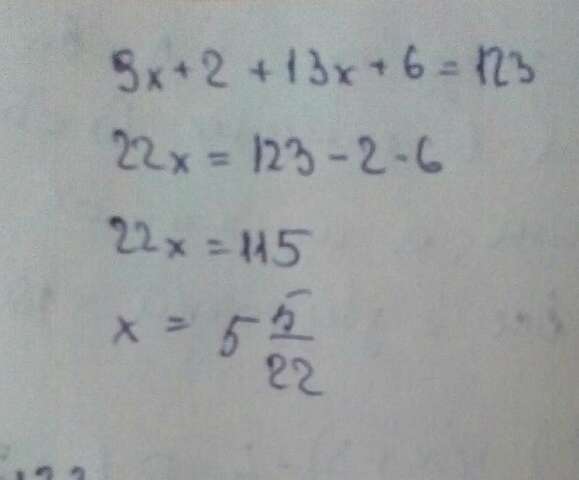 9x + 2 + 13x + 6 = 123
22x = 123 - 2 - 6
22x = 115
x = 5 5/22